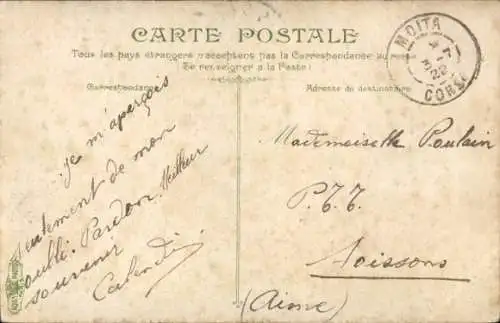 CARTE POSTALE
Tous les pays étrangers n'acceptent pas la Correspondance au recto
Se renseigner à la Poste!
Correspondance
Adresse du destinataire
MOITA
CORSE
Je m'aperçois
de mon
oubli. Pardon. Meilleur
souvenir
Mademoiselle Poulain
P.T.T.
Soissons
(Aisne)